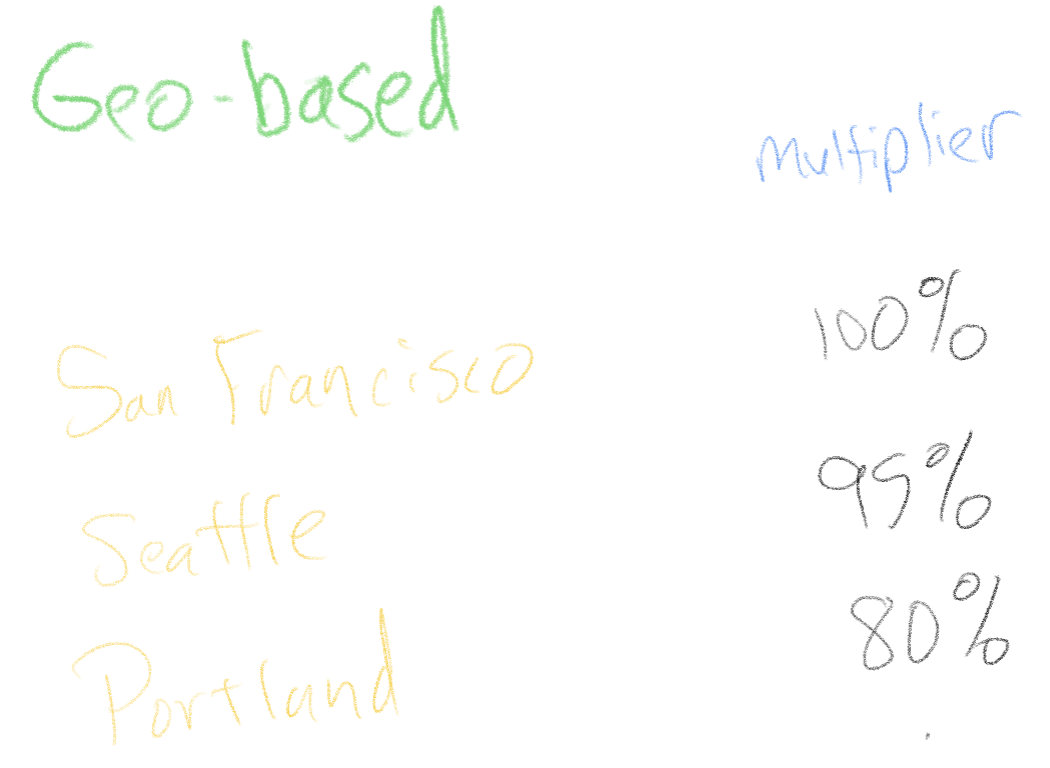 Geo-based
multiplier
San Francisco 100%
Seattle 95%
Portland 80%